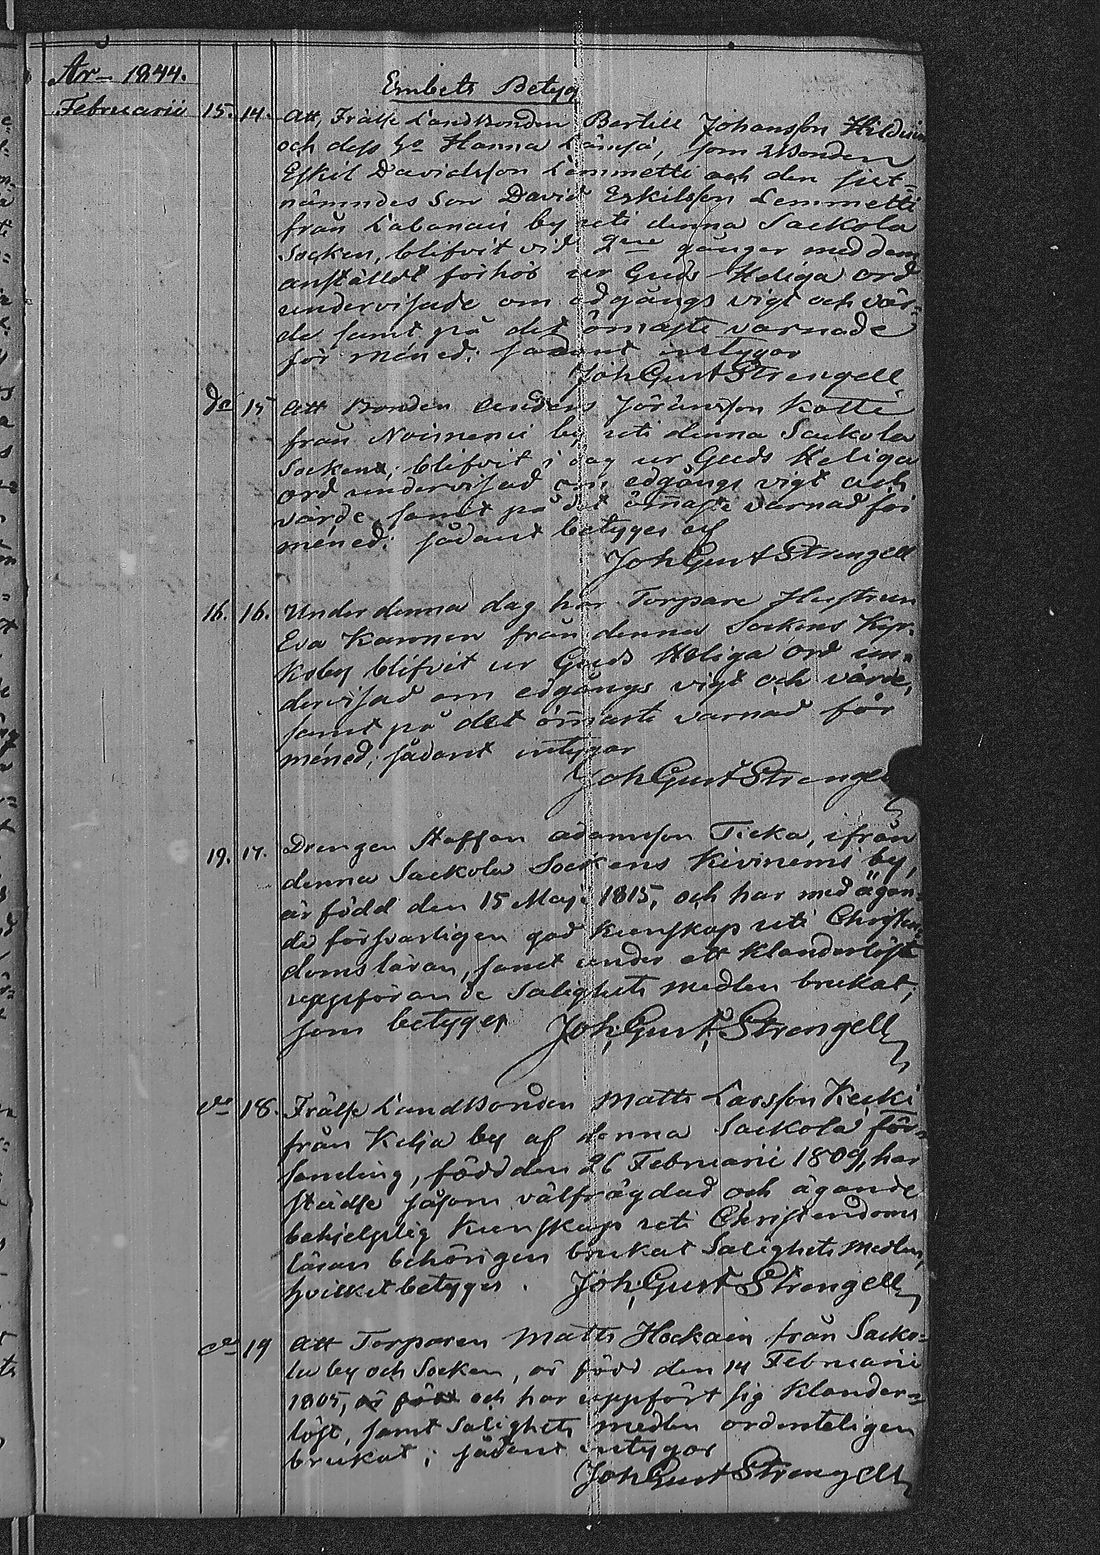 År 1844.
Embets Betyg
Februarii 15. 14. Att, Frälse Landbonden Bertill Johansson
och dess Hanna Länsä, som Bonden
Eskil Davidsson Lemmetti och den sist-
nämndes Son David Eskilsson Lemmetti
från Labanais by uti denna Sackola
Socken, blifvit vid 2ne gånger med dem
anställdt förhör ur Guds Heliga ord
undervisade om edgångs vigt och vär-
de samt på det ömaste varnade
för mened; sådant intygar
Joh Gust Strengell
do 15 Att Bonden Anders Jöransson Kotti
från Noisniemi by uti denna Sackola
Socken, blifvit i dag ur Guds Heliga
ord undervisad om edgångs vigt och
värde, samt på det ömaste varnad för
mened; sådant betyges af
Joh Gust Strengell
16. 16. Under denna dag har Torpare Hustrun
Eva Karonen från denna Sockens Kyr-
koby blifvit ur Guds Heliga ord un-
dervisad om edgångs vigt och värde,
samt på det ömaste varnad för
mened; sådant intygar
Joh Gust Strengell
19. 17. Drengen Staffan Adamsson Ticka, ifrån
denna Sackola Sockens Kivinemi by,
är född den 15 Maji 1815, och har med ägan-
de försvarligen god kunskap uti Christen-
doms läran, samt under ett klanderlöst
uppförande Salighets medlen brukat,
som betyges Joh. Gust. Strengell
do 18. Frälse Landbonden Matts Larsson Keski
från Kelja by af denna Sackola för-
samling, född den 26 Februarii 1809, har
städse såsom välfrägdad och ägande
behjelplig kunskap uti Christendoms
läran behörigen brukat Salighets medlen,
hvilket betyges. Joh. Gust Strengell
do 19 Att Torparen Matts Hockain från Sacko-
la by och Socken, är född den 14 Februarii
1805, är född och har uppfört sig klander-
löst, samt Salighets medlen ordenteligen
brukat; sådant intygar
Joh Gust Strengell